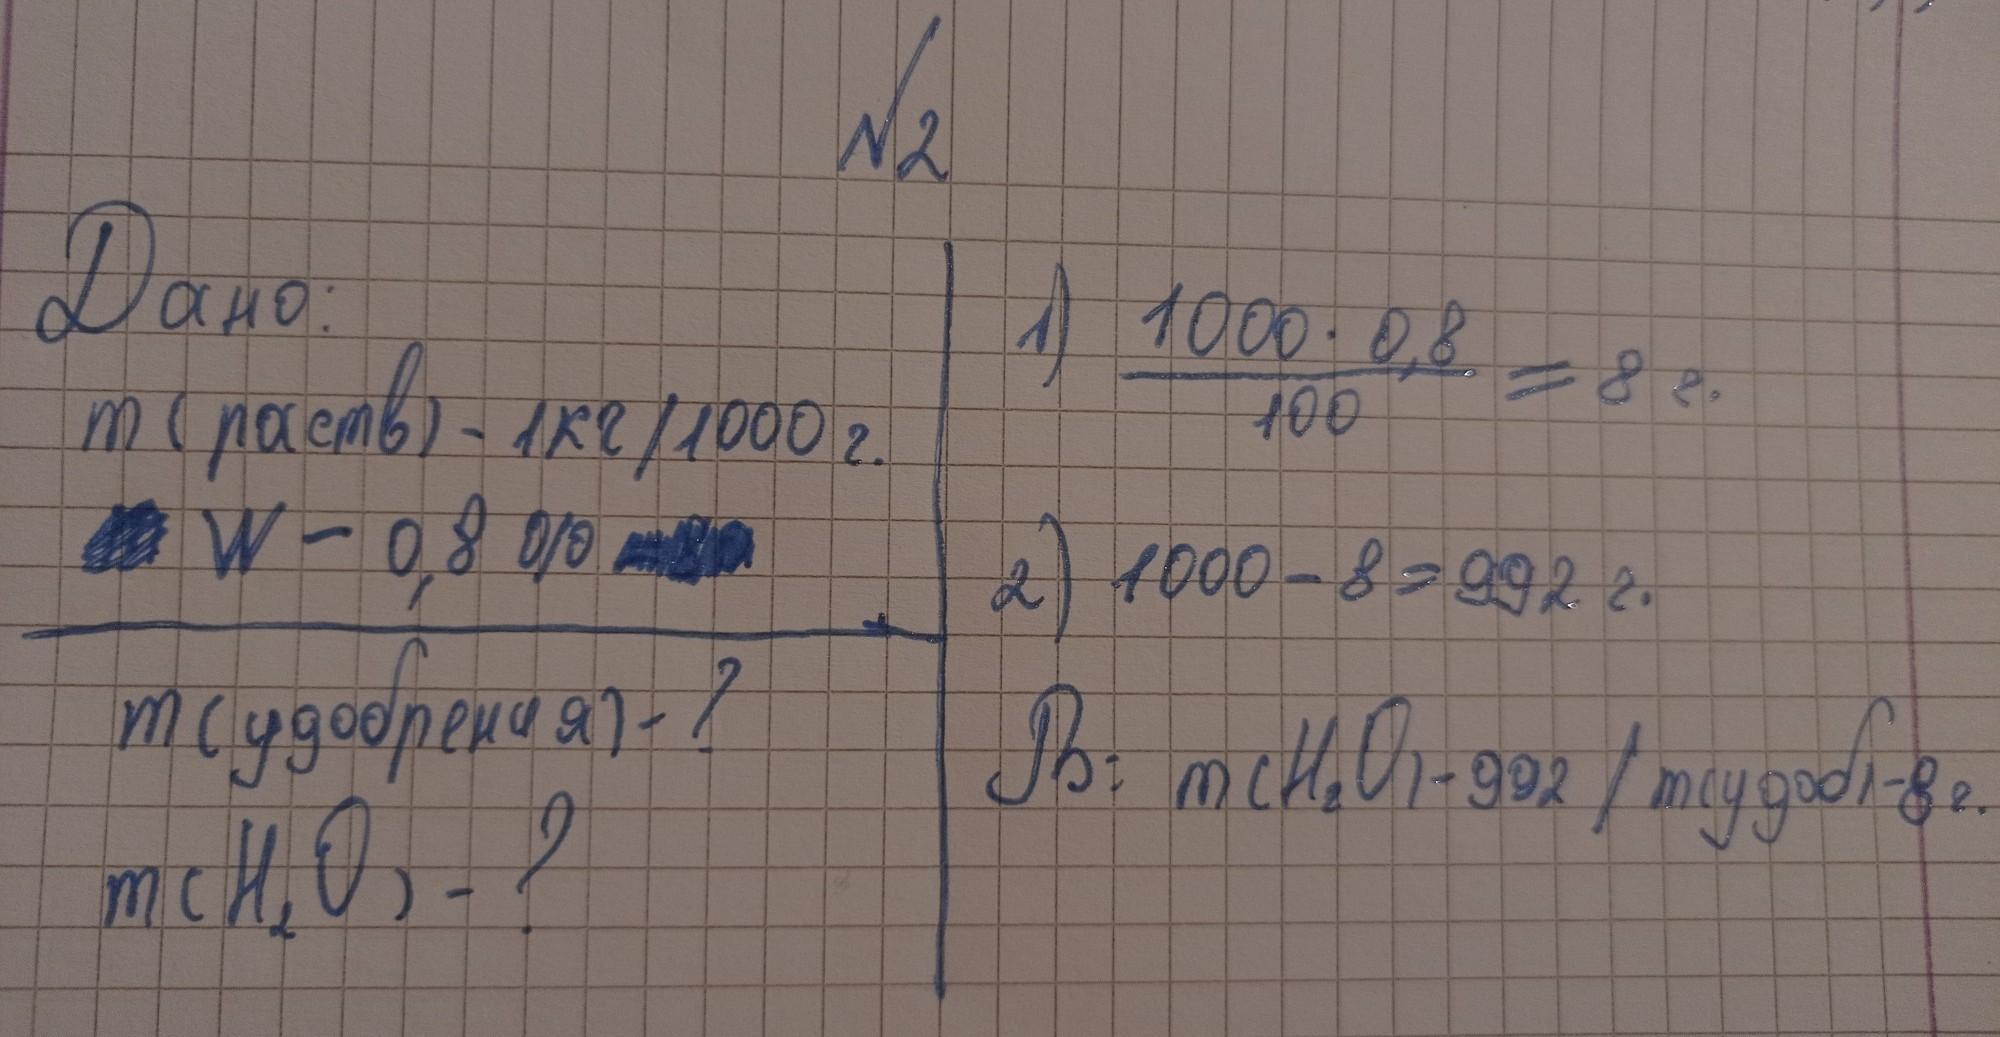 №2
Дано:
m(раств) - 1кг/1000 г.
W - 0,8 %
m(удобрения) - ?
m(H₂O) - ?
1) 1000 · 0,8 / 100 = 8 г.
2) 1000 - 8 = 992 г.
m(H₂O) - 992 / m(удоб) - 8 г.